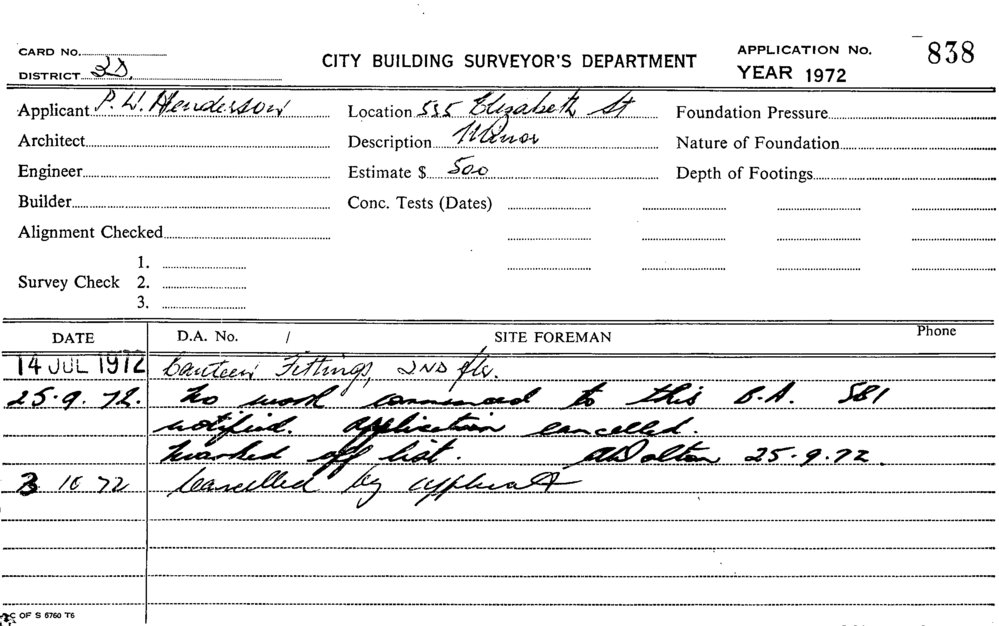 CARD No.
DISTRICT 2D.
CITY BUILDING SURVEYOR'S DEPARTMENT
APPLICATION No. 838
YEAR 1972
Applicant P. W. Henderson Location 535 Elizabeth St Foundation Pressure
Architect Description Minor Nature of Foundation
Engineer Estimate $ 500 Depth of Footings
Builder Conc. Tests (Dates)
Alignment Checked
1.
Survey Check 2.
3.
DATE D.A. No. / SITE FOREMAN Phone
14 JUL 1972 Canteen Fittings, 2ND flr.
25.9.72. No work commenced to this B.A. SB1
notified. Application cancelled.
Marked off list. ADalton 25.9.72.
3 10 72 Cancelled by applicant
C OF S 6760 T6